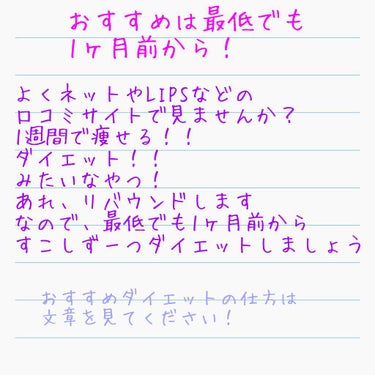 おすすめは最低でも
1ヶ月前から！
よくネットやLIPSなどの
口コミサイトで見ませんか？
1週間で痩せる！！
ダイエット！！
みたいなやつ！
あれ、リバウンドします
なので、最低でも1ヶ月前から
すこしずーつダイエットしましょう
おすすめダイエットの仕方は
文章を見てください！